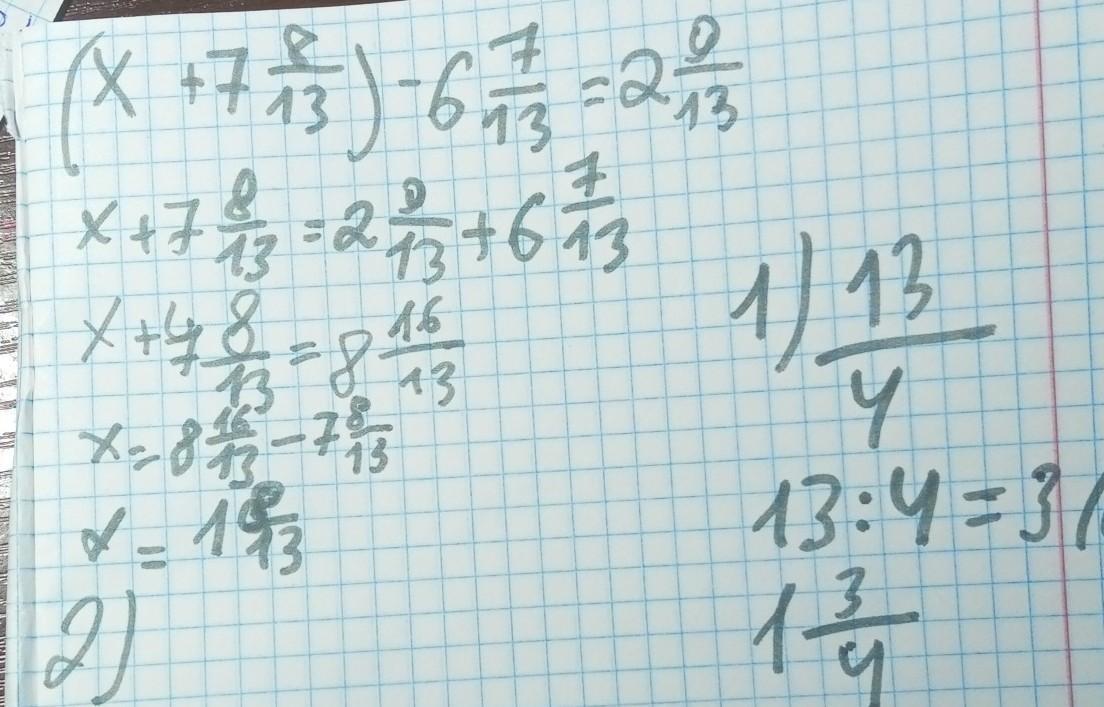 (x + 7 8/13) - 6 7/13 = 2 9/13
x + 7 8/13 = 2 9/13 + 6 7/13
x + 7 8/13 = 8 16/13
x = 8 16/13 - 7 8/13
x = 1 8/13
2)
1) 13/4
13 : 4 = 3 (
1 3/4